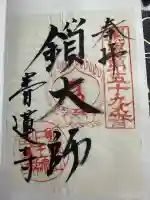 奉拝
五十九番
鎖大師
青蓮寺